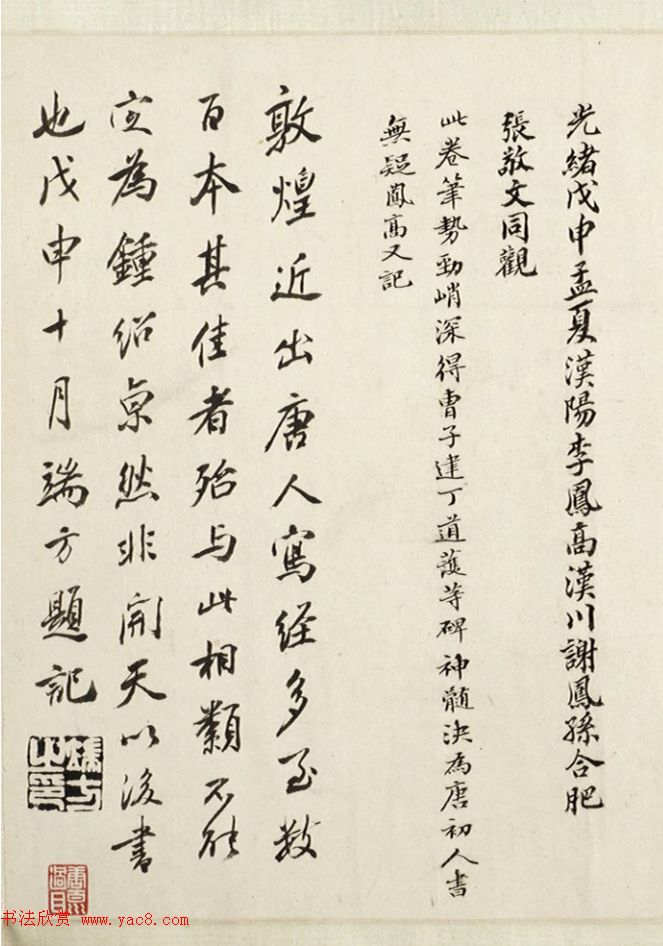 光緒戊申孟夏漢陽李鳳高漢川謝鳳孫合肥
張敬文同觀
此卷筆勢勁峭深得曹子建丁道護等碑神髓決為唐初人書
無疑鳳高又記
敦煌近出唐人寫経多至数
百本其佳者殆与此相類不能
定為鍾紹京然非開天以後書
也戊申十月端方題記
端方之印
書法欣賞 www.yac8.com